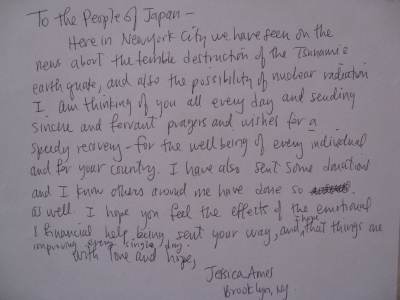 To the People of Japan –
Here in New York City we have seen on the
news about the terrible destruction of the Tsunami &
earthquake, and also the possibility of nuclear radiation.
I am thinking of you all every day and sending
sincere and fervant prayers and wishes for a
speedy recovery – for the well being of every individual
and for your country. I have also sent some donations
and I know others around me have done so
as well. I hope you feel the effects of the emotional
& financial help being sent your way, and I hope that things are
improving every single day.
With love and hope,
Jessica Ames
Brooklyn, NY.